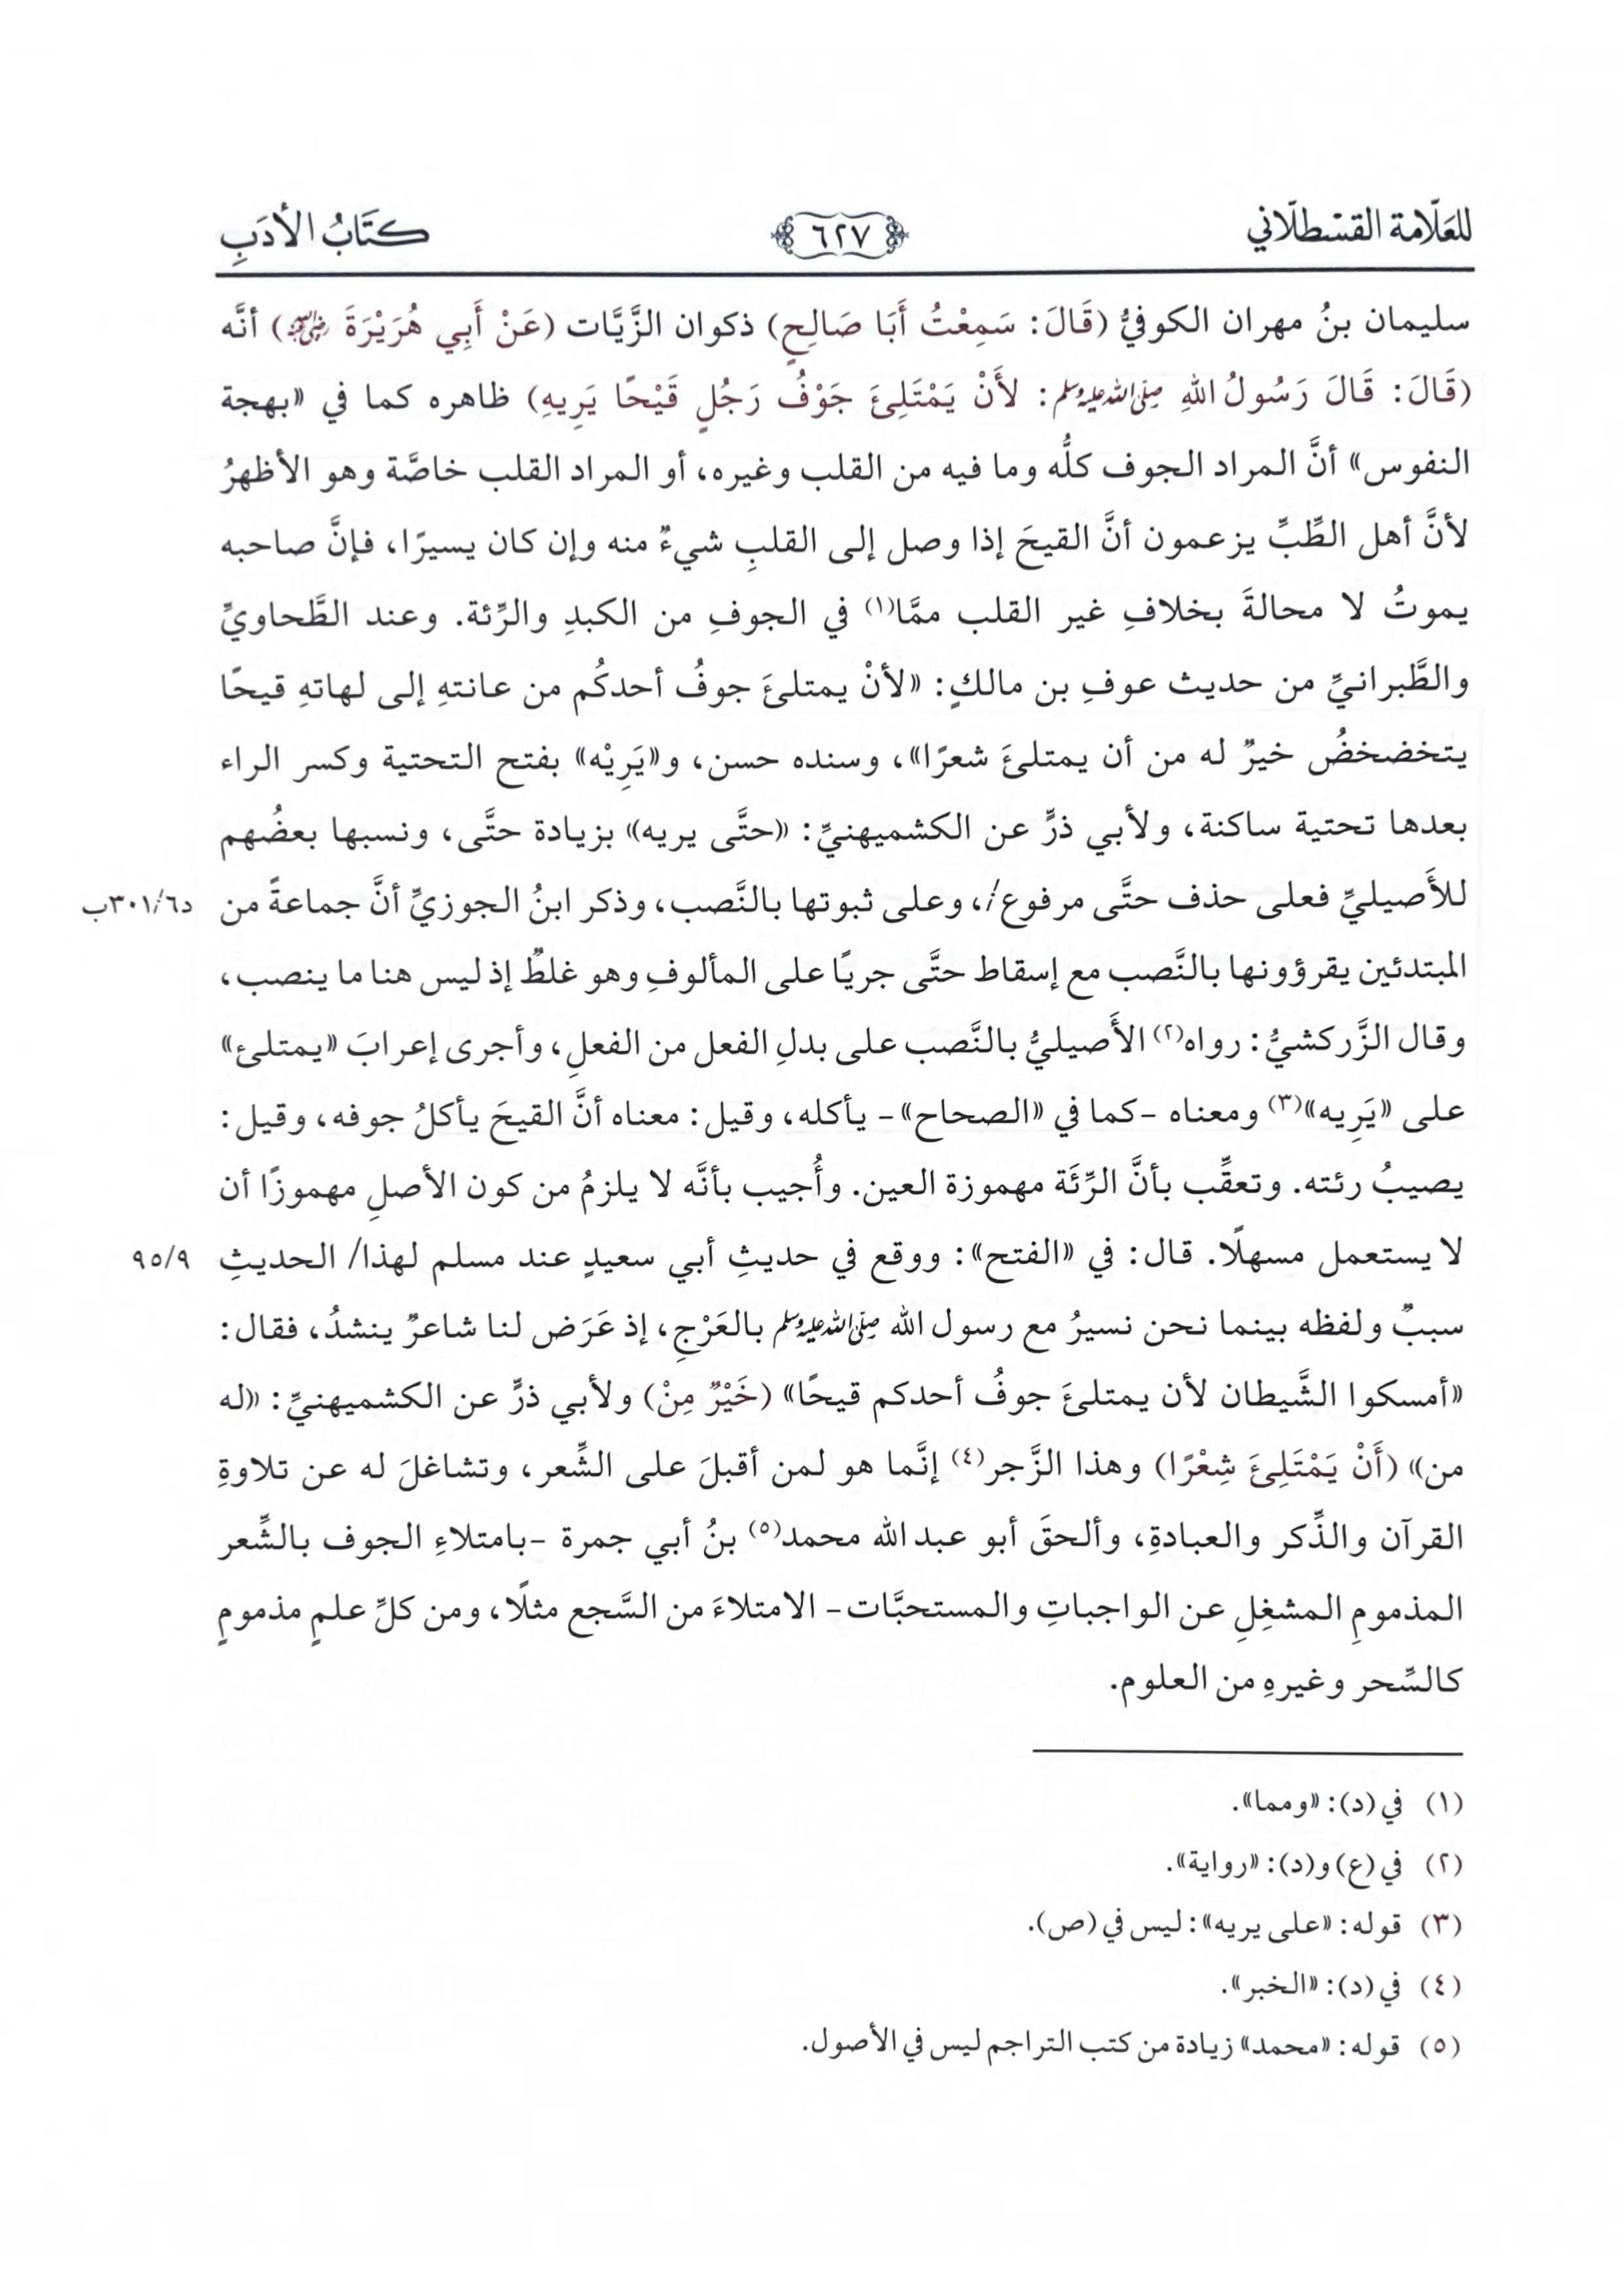 للعَلّامة القسْطلّاني ٦٢٧ كتَابُ الأدَبِ
سليمان بنُ مهران الكوفيُّ (قَالَ: سَمِعْتُ أَبَا صَالِحٍ) ذكوان الزَّيَّات (عَنْ أَبِي هُرَيْرَةَ رضي الله عنه) أنَّه
(قَالَ: قَالَ رَسُولُ اللهِ صلى الله عليه وسلم: لأَنْ يَمْتَلِئَ جَوْفُ رَجُلٍ قَيْحًا يَرِيهِ) ظاهره كما في «بهجة
النفوس» أنَّ المراد الجوف كلُّه وما فيه من القلب وغيره، أو المراد القلب خاصَّة وهو الأظهرُ
لأنَّ أهل الطِّبِّ يزعمون أنَّ القيحَ إذا وصل إلى القلبِ شيءٌ منه وإن كان يسيرًا، فإنَّ صاحبه
يموتُ لا محالةَ بخلافِ غير القلب ممَّا(١) في الجوفِ من الكبدِ والرِّئة. وعند الطَّحاويِّ
والطَّبرانيِّ من حديث عوفِ بن مالكٍ: «لأنْ يمتلئَ جوفُ أحدكُم من عانتهِ إلى لهاتهِ قيحًا
يتخضخضُ خيرٌ له من أن يمتلئَ شعرًا»، وسنده حسن، و«يَرِيْه» بفتح التحتية وكسر الراء
بعدها تحتية ساكنة، ولأبي ذرٍّ عن الكشميهنيِّ: «حتَّى يريه» بزيادة حتَّى، ونسبها بعضُهم
للأَصيليِّ فعلى حذف حتَّى مرفوع/، وعلى ثبوتها بالنَّصب، وذكر ابنُ الجوزيِّ أنَّ جماعةً من د٣٠١/٦ب
المبتدئين يقرؤونها بالنَّصب مع إسقاط حتَّى جريًا على المألوفِ وهو غلطٌ إذ ليس هنا ما ينصب،
وقال الزَّركشيُّ: رواه(٢) الأَصيليُّ بالنَّصب على بدلِ الفعل من الفعلِ، وأجرى إعرابَ «يمتلئ»
على «يَرِيه»(٣) ومعناه -كما في «الصحاح»- يأكله، وقيل: معناه أنَّ القيحَ يأكلُ جوفه، وقيل:
يصيبُ رئته. وتعقِّب بأنَّ الرِّئَة مهموزة العين. وأُجيب بأنَّه لا يلزمُ من كون الأصلِ مهموزًا أن
لا يستعمل مسهلًا. قال: في «الفتح»: ووقع في حديثِ أبي سعيدٍ عند مسلم لهذا/ الحديثِ ٩٥/٩
سببٌ ولفظه بينما نحن نسيرُ مع رسول الله صلى الله عليه وسلم بالعَرْجِ، إذ عَرَض لنا شاعرٌ ينشدُ، فقال:
«أمسكوا الشَّيطان لأن يمتلئَ جوفُ أحدكم قيحًا» (خَيْرٌ مِنْ) ولأبي ذرٍّ عن الكشميهنيِّ: «له
من» (أَنْ يَمْتَلِئَ شِعْرًا) وهذا الزَّجر(٤) إنَّما هو لمن أقبلَ على الشِّعر، وتشاغلَ له عن تلاوةِ
القرآن والذِّكر والعبادةِ، وألحقَ أبو عبد الله محمد(٥) بنُ أبي جمرة -بامتلاءِ الجوف بالشِّعر
المذمومِ المشغِلِ عن الواجباتِ والمستحبَّات- الامتلاءَ من السَّجع مثلًا، ومن كلِّ علمٍ مذمومٍ
كالسِّحر وغيرهِ من العلوم.
(١) في (د): «ومما».
(٢) في (ع) و(د): «رواية».
(٣) قوله: «على يريه»: ليس في (ص).
(٤) في (د): «الخبر».
(٥) قوله: «محمد» زيادة من كتب التراجم ليس في الأصول.